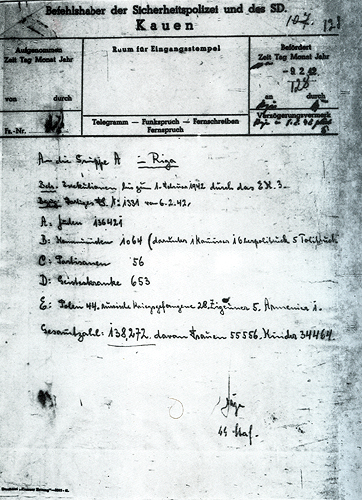 Befehlshaber der Sicherheitspolizei und des SD.
Kauen
107. 128
Aufgenommen
Zeit Tag Monat Jahr
von durch
Raum für Eingangsstempel
Befördert
Zeit Tag Monat Jahr
-9.2.42.
an durch
Verzögerungsvermerk
Fs.-Nr.
Telegramm — Funkspruch — Fernschreiben
Fernspruch
An die Gruppe A — Riga
Betr.: Exekutionen bis zum 1. Februar 1942 durch das E.K. 3.
Bezug: Dortiges FS. Nr. 1331 vom 6.2.42.
A: Juden 136421
B: Kommunisten 1064 (darunter 1 Kommissar 5
C: Partisanen 56
D: Geisteskranke 653
E: Polen 44, russische Kriegsgefangene 28, Zigeuner 5, Armenier 1.
Gesamtzahl: 138,272, davon Frauen 55556, Kinder 34464.
Jäger
SS Staf.